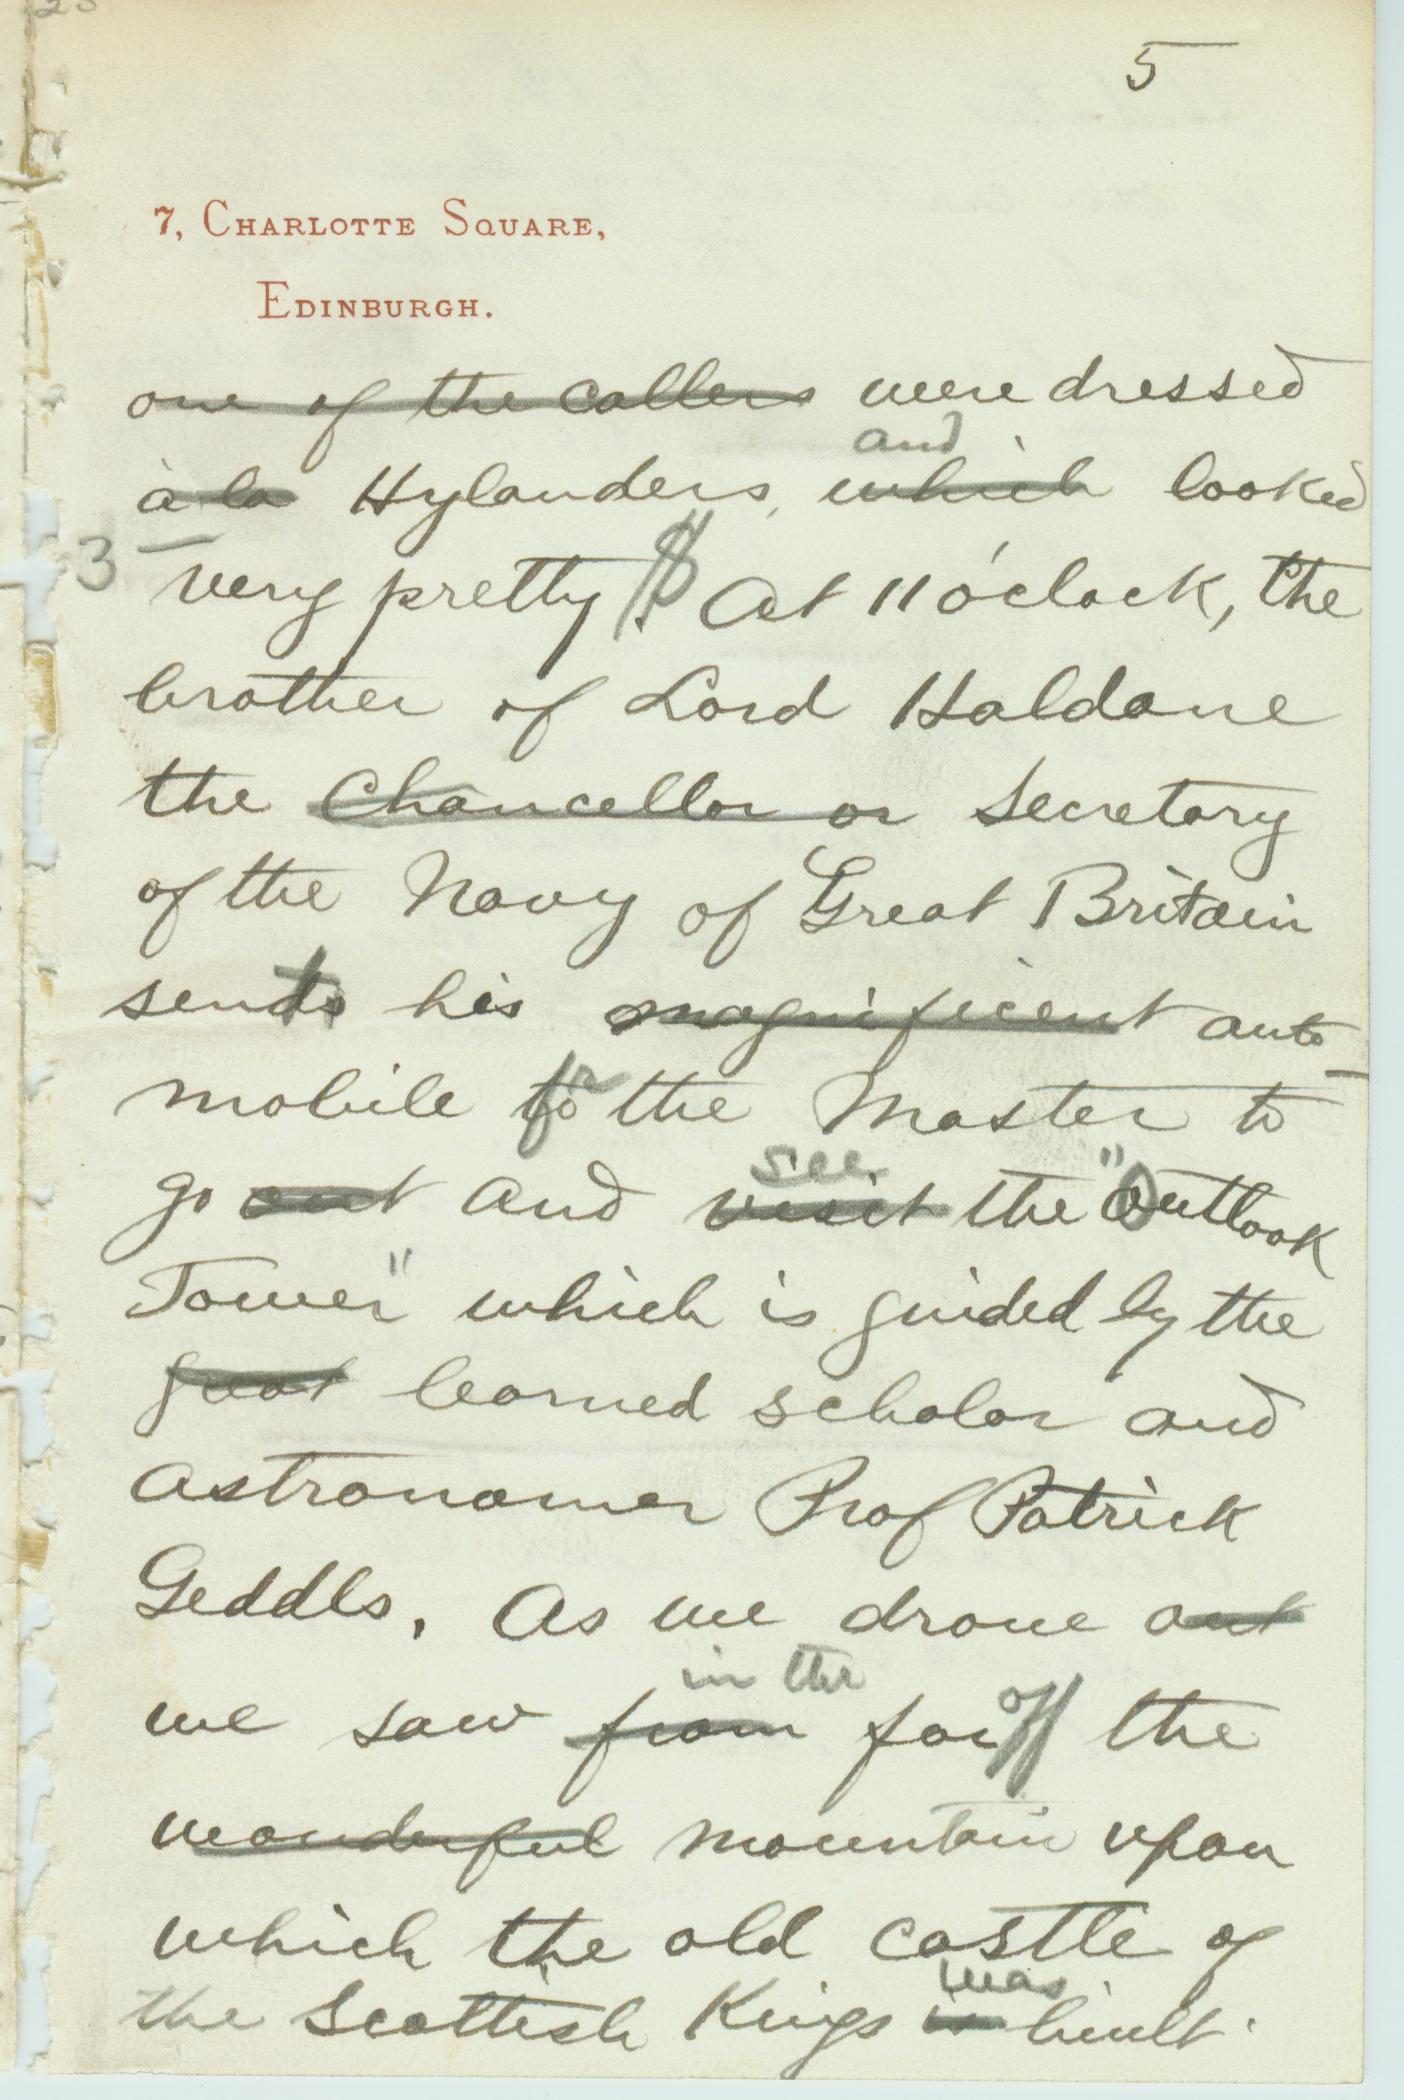 25
5
7, Charlotte Square,
Edinburgh.
one of the callers were dressed
and
à la Hylanders, which looked
3
very pretty. At 11 o'clock, the
brother of Lord Haldane
the Chancellor or Secretary
of the Navy of Great Britain
sends his magnificent auto-
mobile for the Master to
see
go out and visit the "Outlook
Tower" which is guided by the
great learned scholar and
astronomer Prof Patrick
Geddes. As we drove out
in the
we saw from far off the
wonderful mountain upon
which the old castle of
was
the Scottish Kings is built.